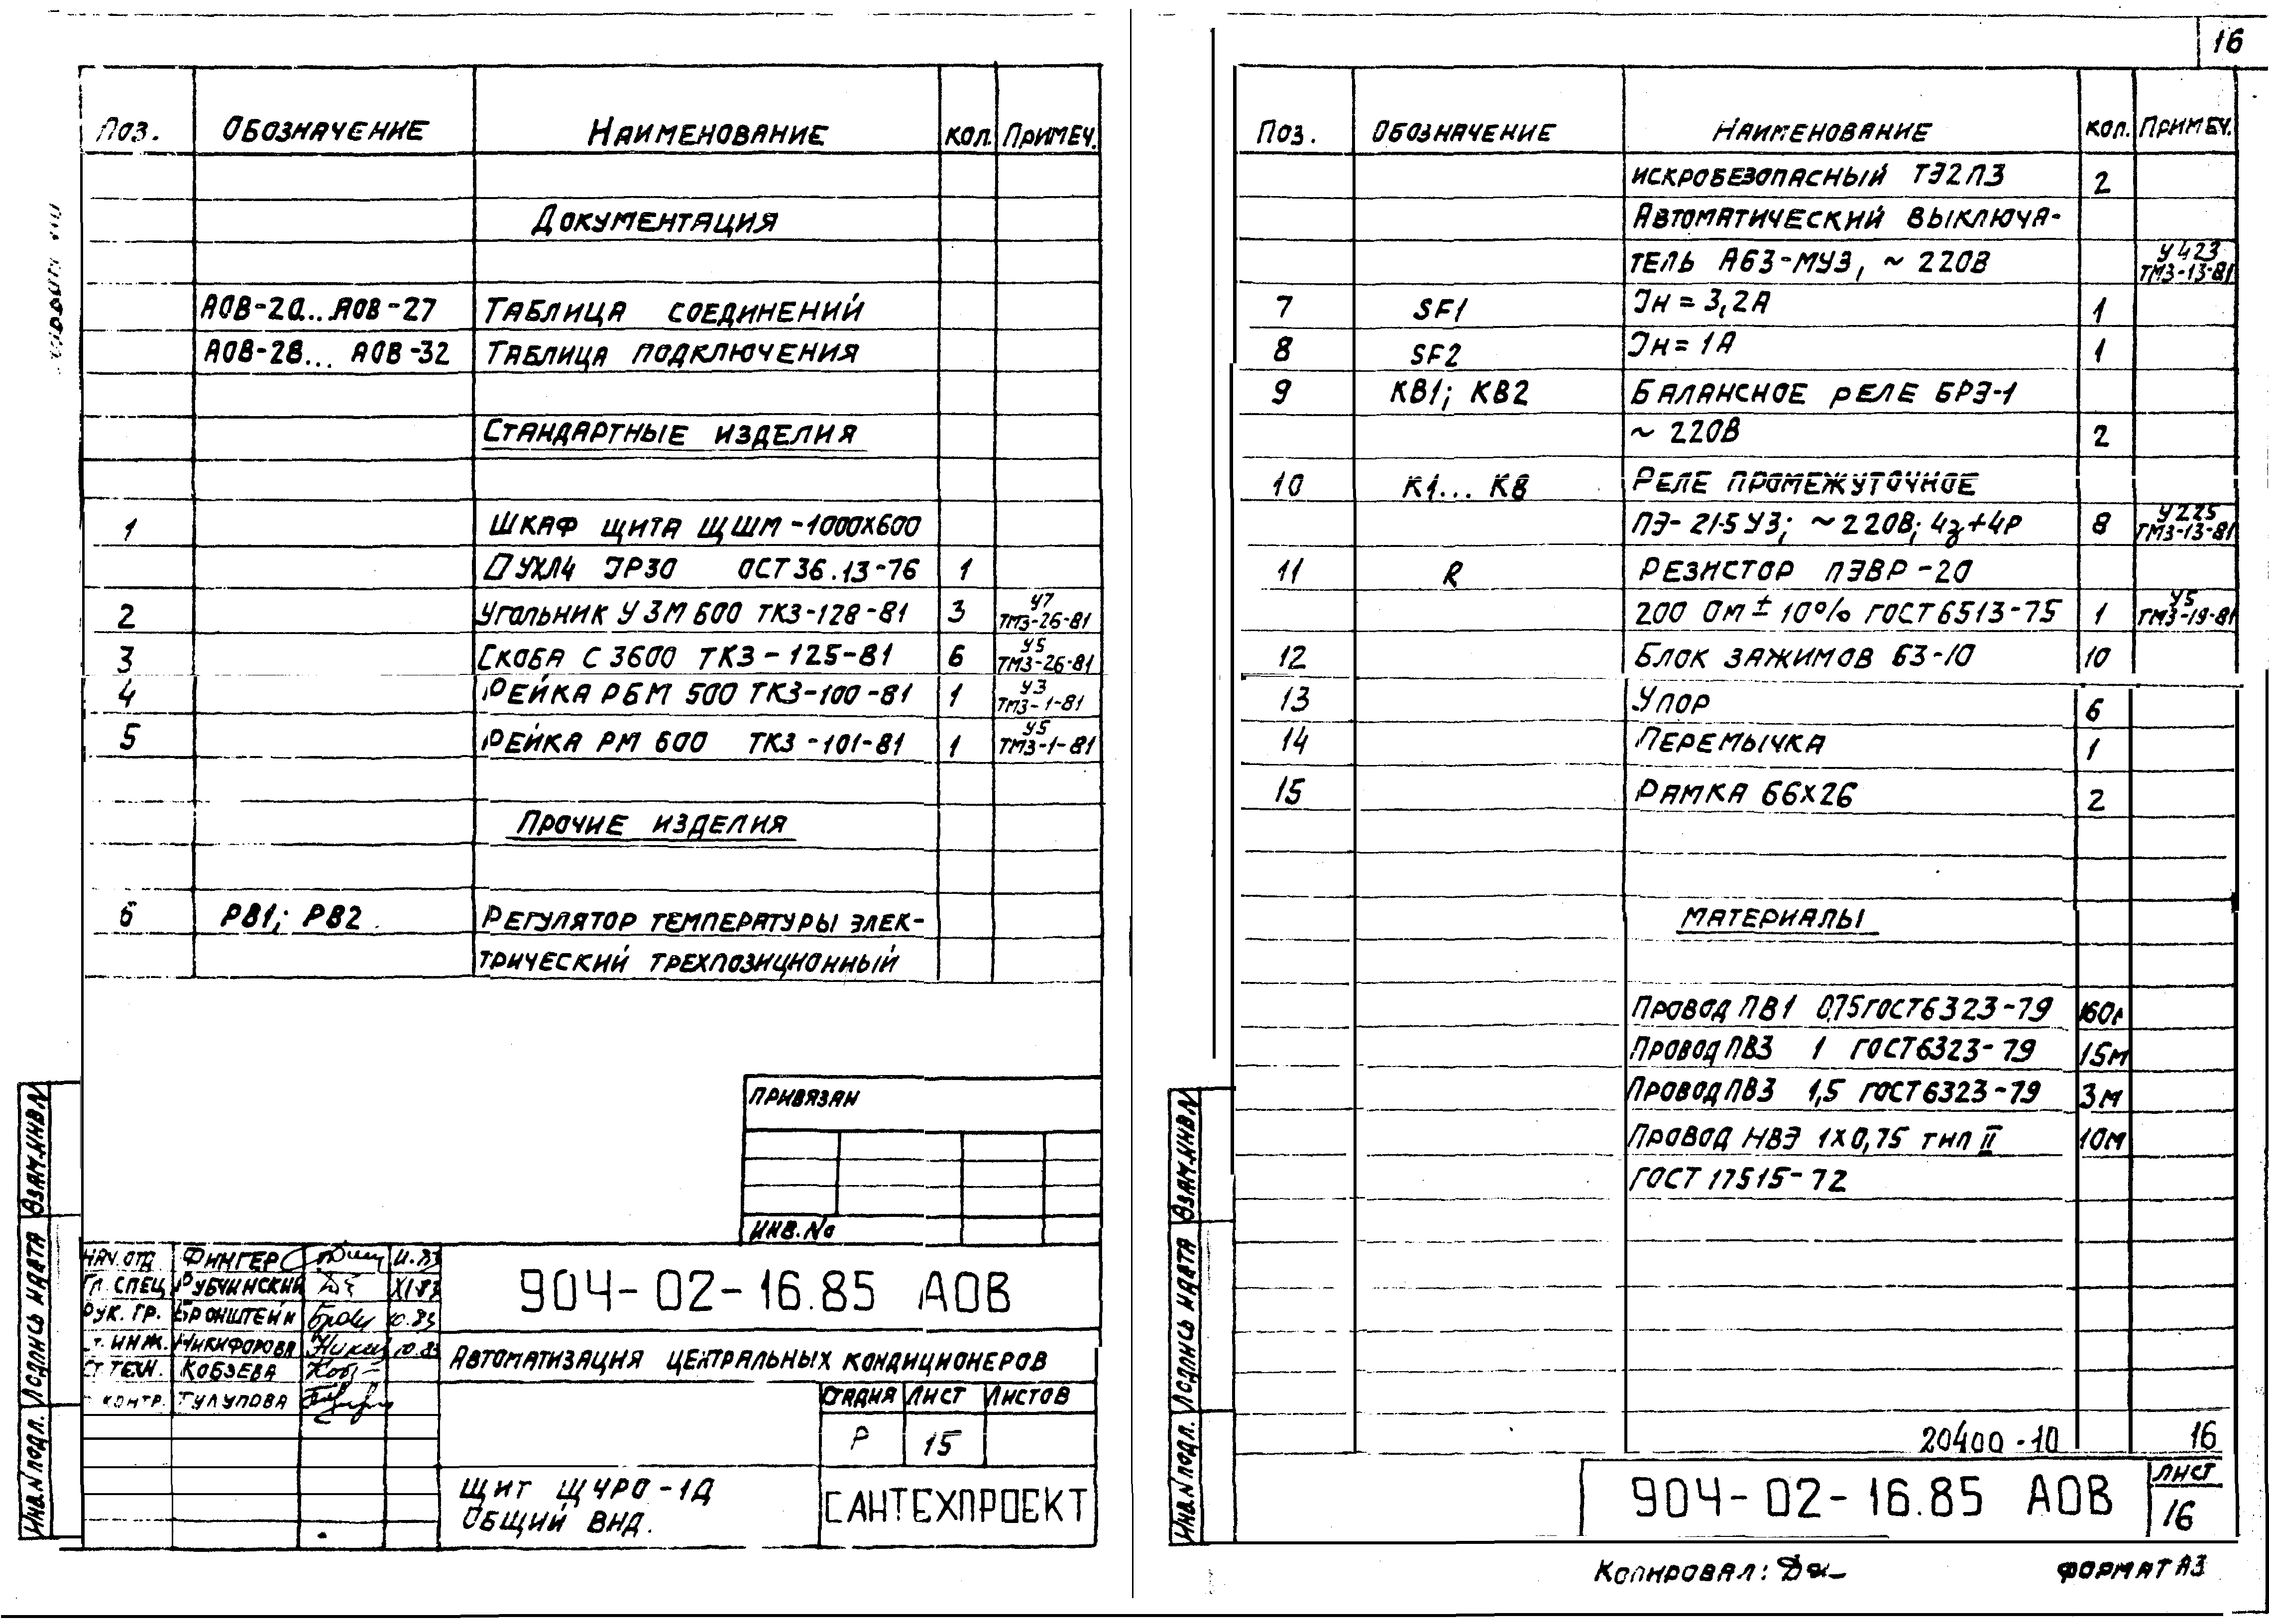 16
Поз. Обозначение Наименование Кол. Примеч.
Документация
АОВ-20...АОВ-27 Таблица соединений
АОВ-28... АОВ-32 Таблица подключения
Стандартные изделия
1 Шкаф щита ЩШМ-1000х600
УХЛ4 IР30 ОСТ 36.13-76 1
2 Угольник У3М 600 ТК3-128-81 3 У7 ТМ3-26-81
3 Скоба С 3600 ТК3-125-81 6 У5 ТМ3-26-81
4 Рейка РБМ 500 ТК3-100-81 1 У3 ТМ3-1-81
5 Рейка РМ 600 ТК3-101-81 1 У5 ТМ3-1-81
Прочие изделия
6 РВ1; РВ2 Регулятор температуры элек-
трический трехпозиционный
Привязан
Инв. №
Нач. отд. Фингер 11.83
Гл. спец. Рубчинский XI.83
Рук. гр. Бронштейн 10.83
Ст. инж. Никифорова 10.83
Ст. техн. Кобзева
контр. Тулупова
904-02-16.85 АОВ
Автоматизация центральных кондиционеров
Стадия Лист Листов
Р 15
Щит ЩЧРО-1Д
Общий вид.
САНТЕХПРОЕКТ
Инв.№ подл. Подпись и дата Взам.инв.№
Поз. Обозначение Наименование Кол. Примеч.
искробезопасный ТЭ2П3 2
Автоматический выключа-
тель А63-МУ3, ~ 220В У423 ТМ3-13-81
7 SF1 Iн = 3,2А 1
8 SF2 Iн = 1А 1
9 КВ1; КВ2 Балансное реле БРЭ-1
~ 220В 2
10 К1... К8 Реле промежуточное
ПЭ-21-5У3; ~ 220В; 4з+4р 8 У225 ТМ3-13-81
11 R Резистор ПЭВР-20
200 Ом ± 10% ГОСТ 6513-75 1 У5 ТМ3-19-81
12 Блок зажимов БЗ-10 10
13 Упор 6
14 Перемычка 1
15 Рамка 66х26 2
Материалы
Провод ПВ1 0,75 ГОСТ 6323-79 160м
Провод ПВ3 1 ГОСТ 6323-79 15м
Провод ПВ3 1,5 ГОСТ 6323-79 3м
Провод НВЭ 1х0,75 тип II 10м
ГОСТ 17515-72
20400-10 16
904-02-16.85 АОВ
Лист
16
Инв.№ подл. Подпись и дата Взам.инв.№
Копировал:
Формат А3